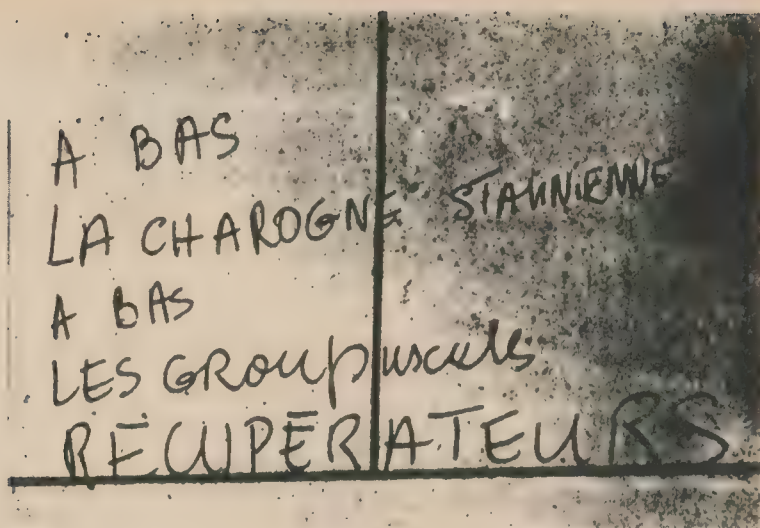 A BAS
LA CHAROGNE STALINIENNE
A BAS
LES GROUpuscules
RÉCUPÉRATEURS